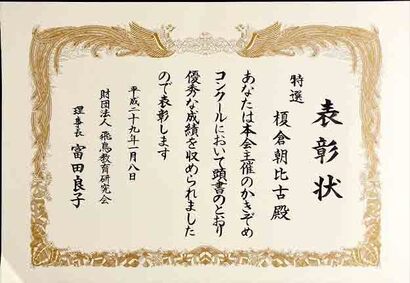 表彰状
特選
榎倉朝比古殿
あなたは本会主催のかきぞめ
コンクールにおいて頭書のとおり
優秀な成績を収められました
ので表彰します
平成二十九年一月八日
財団法人 飛鳥教育研究会
理事長 富田良子